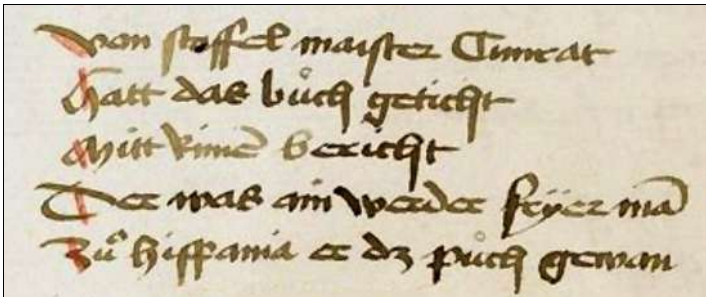 Von stoffel maister Cunrat
Hatt das bůch geticht
Mitt rimē bericht
Der was ain werder fryer mā
Zů hispania er dz půch gewan